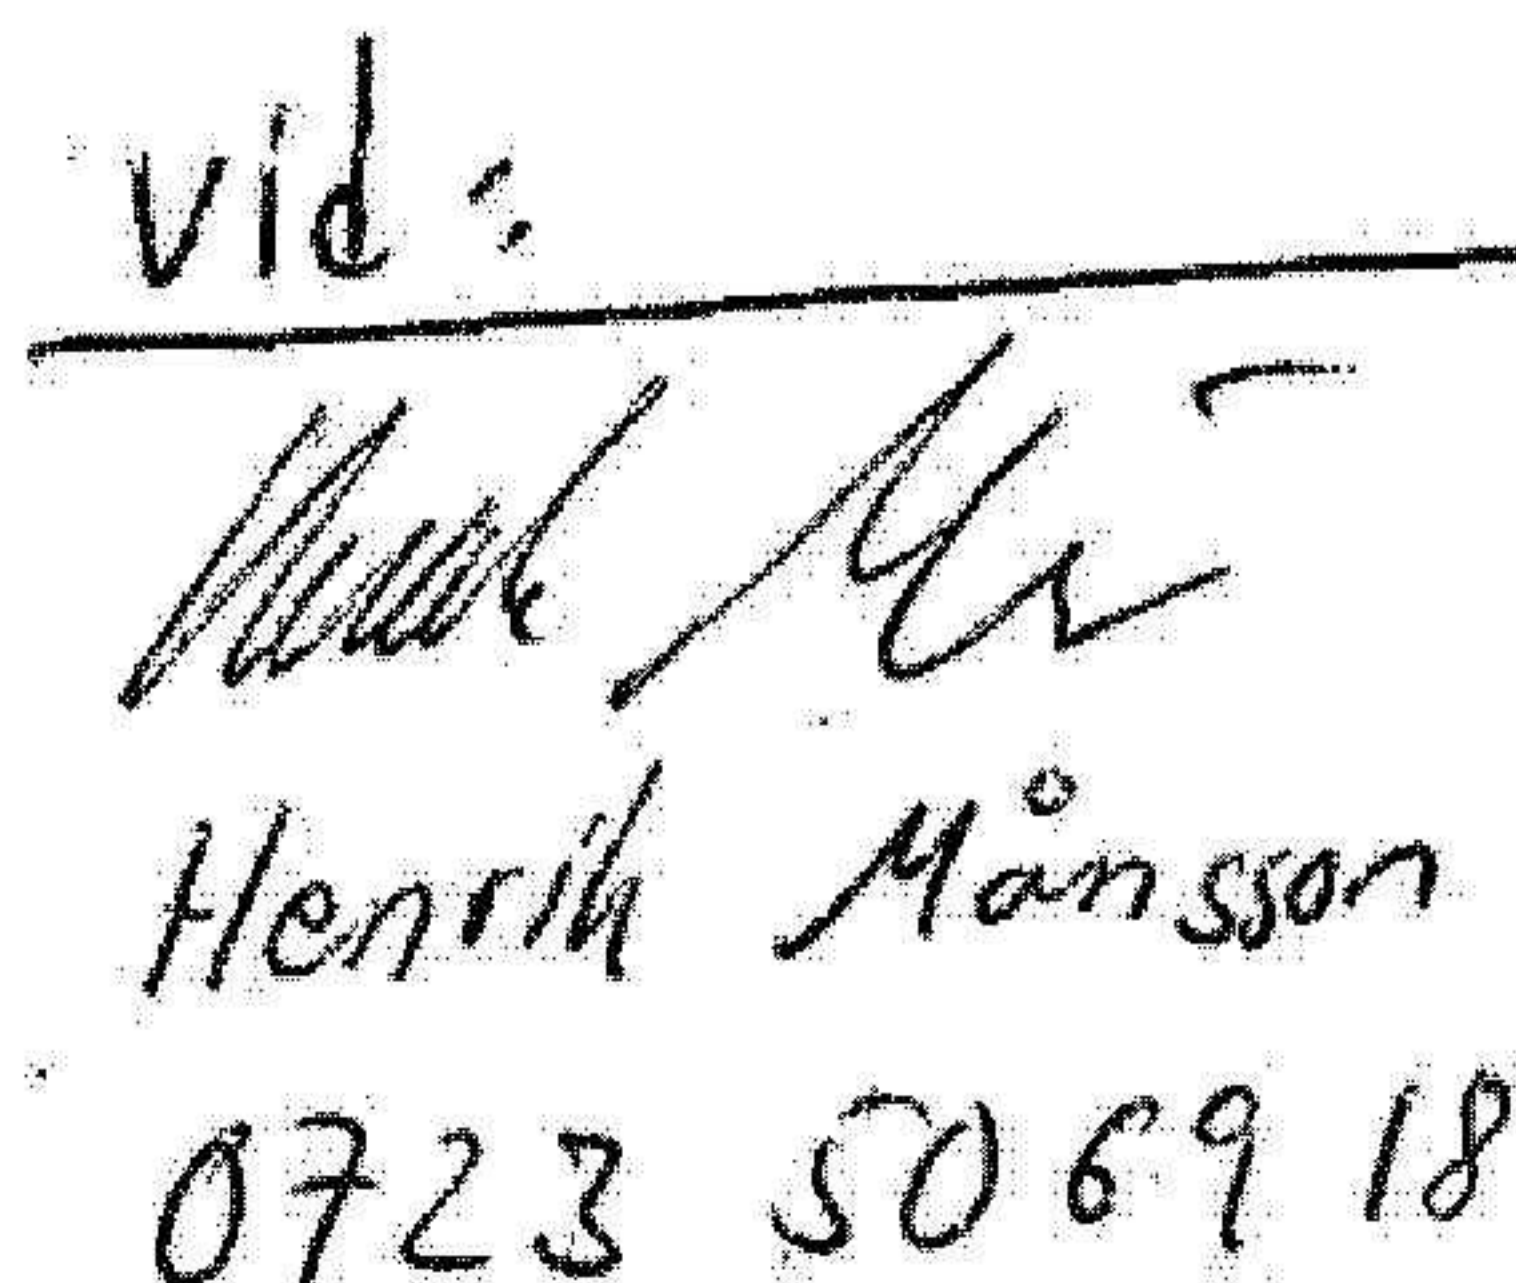 vid:
Henrik Månsson
0723 5069 18